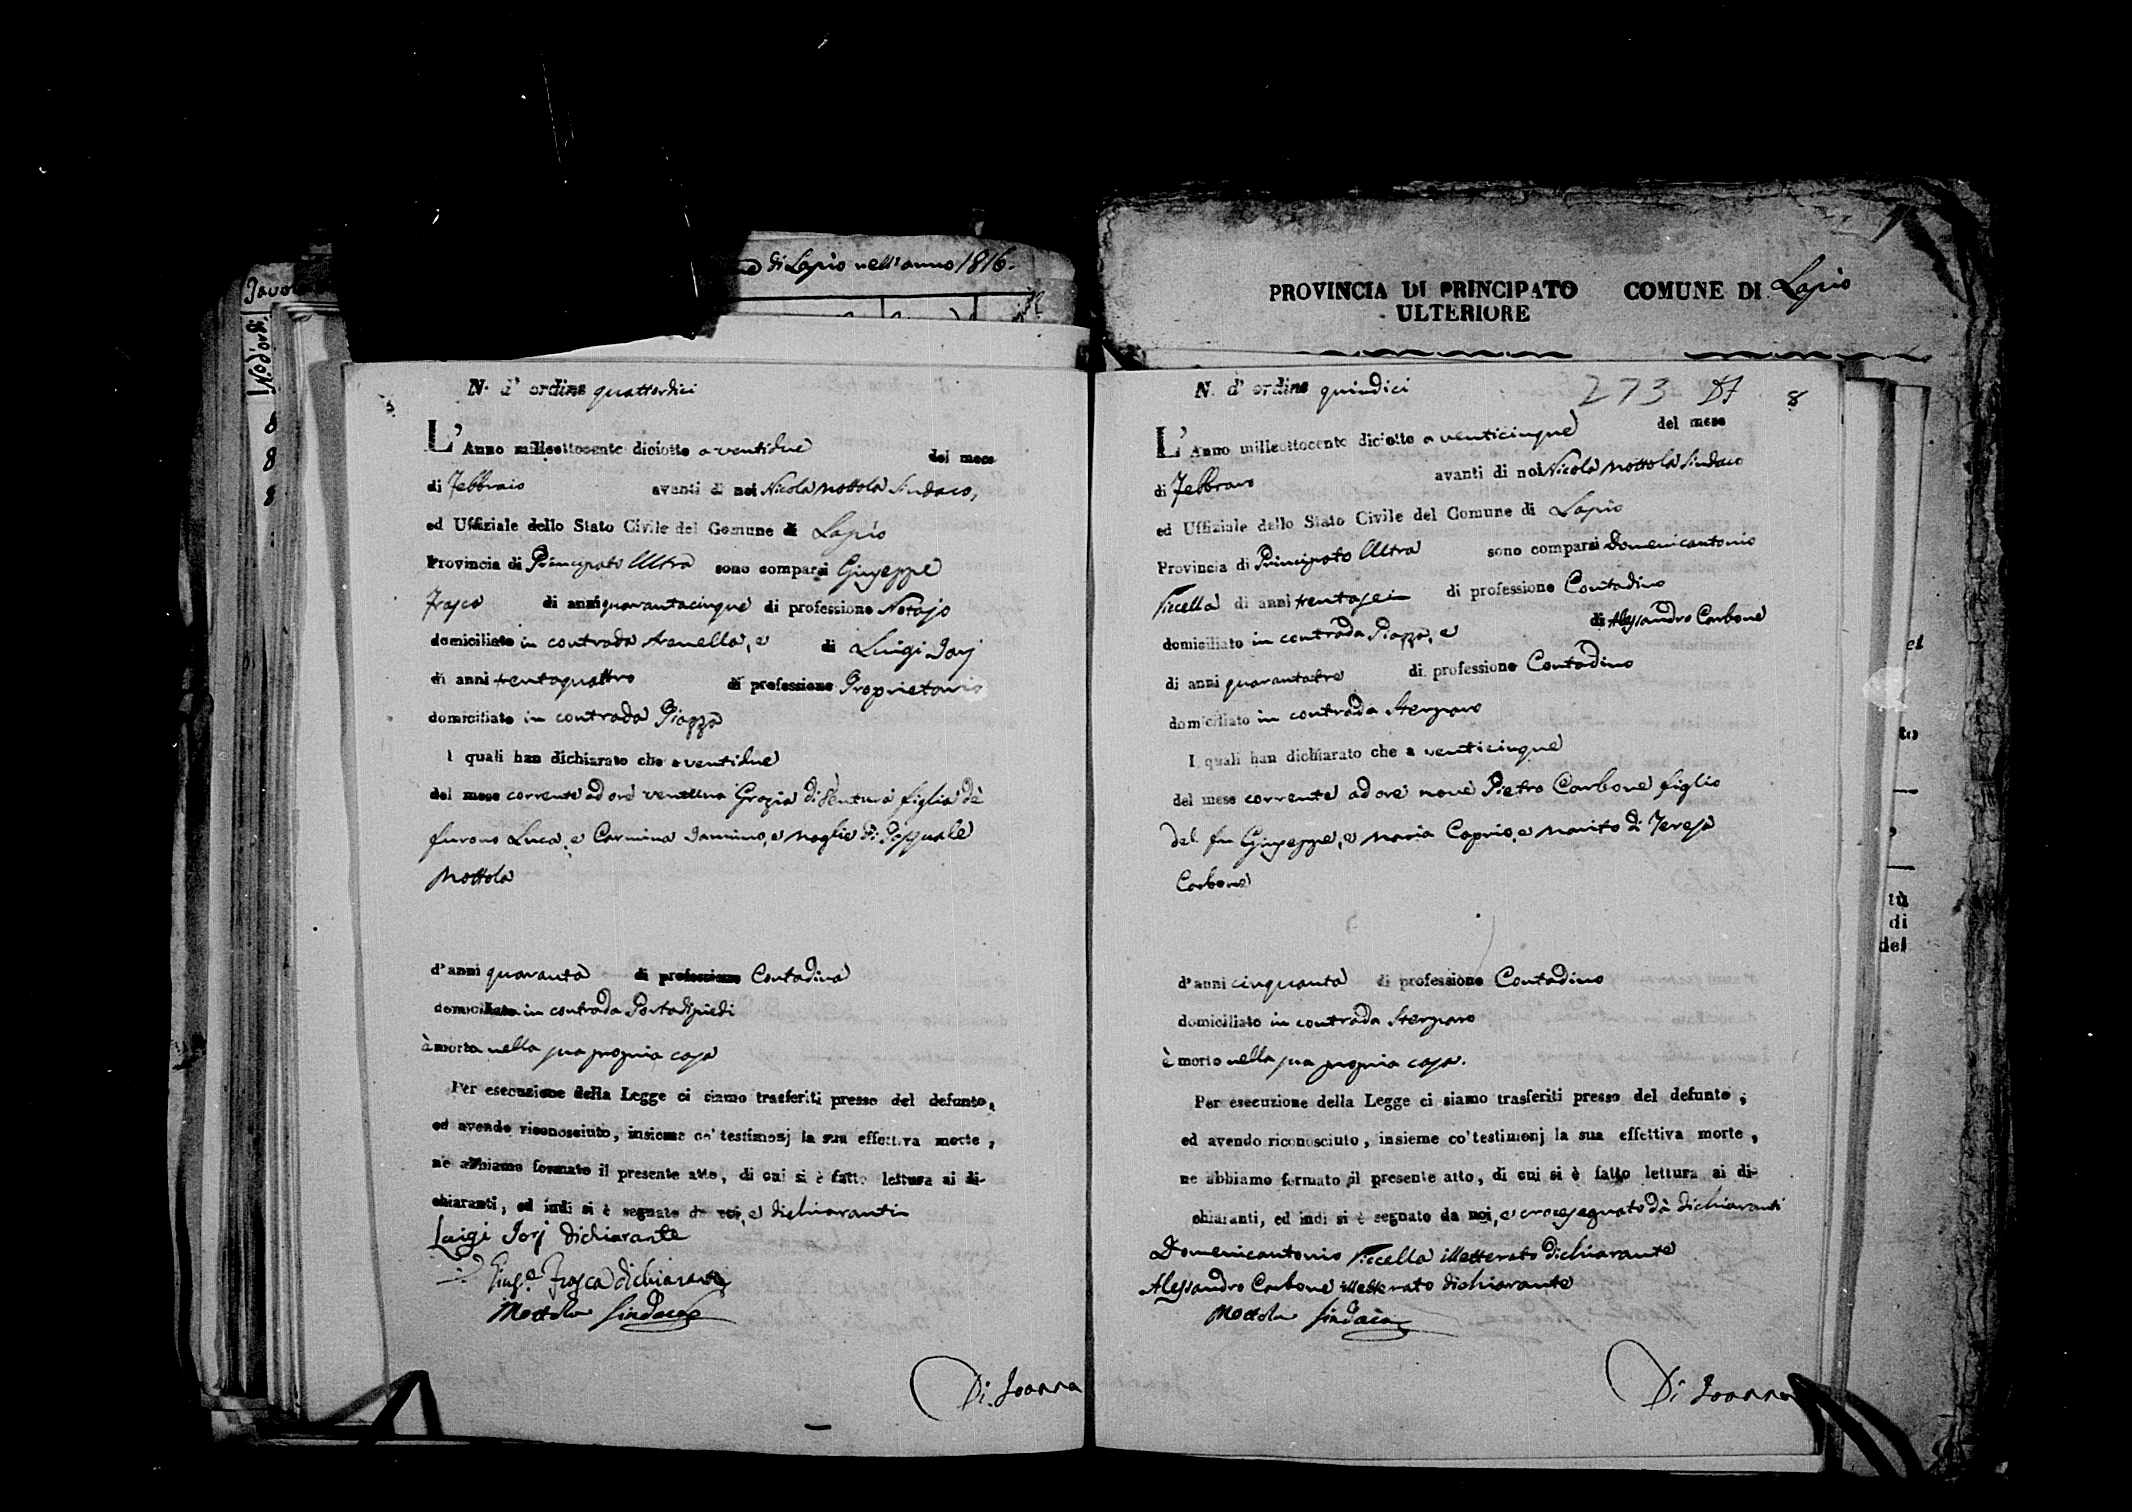 di Lapio nell'anno 1816.
N. d'ord.
8
8
8
N. d' ordine quattordici
L'Anno milleottocento diciotto a ventidue del mese
di Febbraio avanti di noi Nicola Mottola Sindaco,
ed Uffiziale dello Stato Civile del Comune di Lapio
Provincia di Principato Ultra sono comparsi Giuseppe
Frasca di anni quarantacinque di professione Notajo
domiciliato in contrada Arenella, e di Luigi Jorj
di anni trentaquattro di professione Proprietario
domiciliato in contrada Piazza
I quali han dichiarato che a ventidue
del mese corrente ad ore ventuna Grazia di Ventura figlia de
furono Luca, e Carmina Iannino, e moglie di Pasquale
Mottola
d'anni quaranta di professione Contadina
domiciliata in contrada Portadipiedi
è morta nella sua propria casa
Per esecuzione della Legge ci siamo trasferiti presso del defunto,
ed avendo riconosciuto, insieme co' testimonj la sua effettiva morte,
ne abbiamo formato il presente atto, di cui si è fatto lettura ai di-
chiaranti, ed indi si è segnato da noi, e dichiaranti
Luigi Jorj dichiarante
Gius.e Frasca dichiarante
Mottola Sindaco
Di Joanna
PROVINCIA DI PRINCIPATO COMUNE DI Lapio
ULTERIORE
N. d' ordine quindici 273 8
L'Anno milleottocento diciotto a venticinque del mese
di Febbraro avanti di noi Nicola Mottola Sindaco
ed Uffiziale dello Stato Civile del Comune di Lapio
Provincia di Principato Ultra sono comparsi Domenicantonio
Piccella di anni trentasei di professione Contadino
domiciliato in contrada Piazza, e di Alessandro Carbone
di anni quarantatre di professione Contadino
domiciliato in contrada Sterparo
I quali han dichiarato che a venticinque
del mese corrente ad ore nove Pietro Carbone figlio
del fu Giuseppe, e Maria Caprio, e marito di Teresa
Carbone
d'anni cinquanta di professione Contadino
domiciliato in contrada Sterparo
è morto nella sua propria casa.
Per esecuzione della Legge ci siamo trasferiti presso del defunto,
ed avendo riconosciuto, insieme co'testimonj la sua effettiva morte,
ne abbiamo formato il presente atto, di cui si è fatto lettura ai di-
chiaranti, ed indi si è segnato da noi, e crocesegnato dà dichiaranti
Domenicantonio Piccella illetterato dichiarante
Alessandro Carbone illetterato dichiarante
Mottola Sindaco
Di Joanna
to
tù
di
del